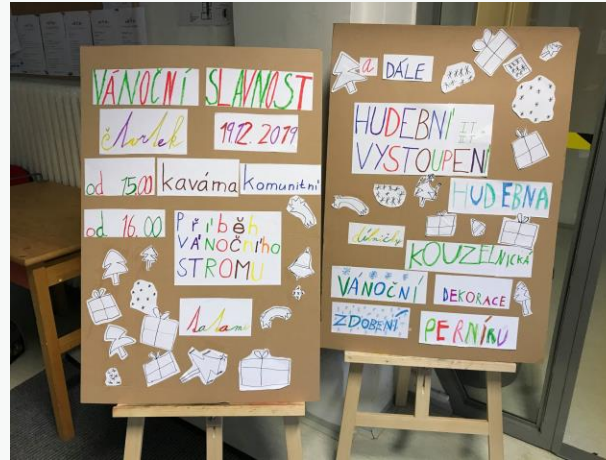 VÁNOČNÍ SLAVNOST
čtvrtek 19.12.2019
od 15.00 kavárna komunitní
od 16.00 Příběh
VÁNOČního
STROMU
a DÁLE
HUDEBNÍ
VYSTOUPENÍ
HUDEBNA
dílničky
KOUZELNICKÁ
VÁNOČNÍ DEKORACE
ZDOBENÍ PERNÍKŮ